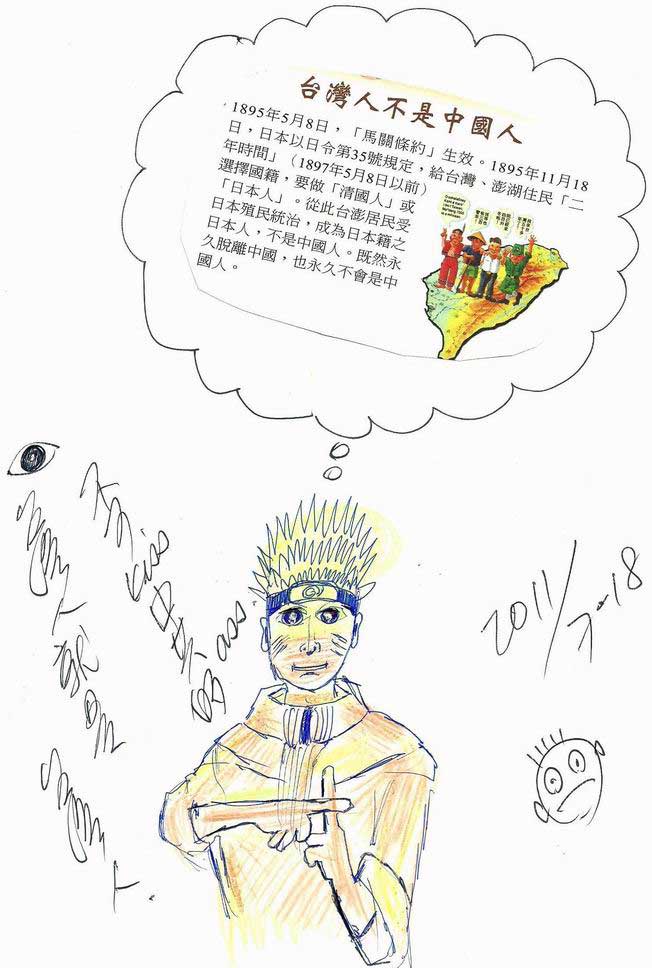 台灣人不是中國人
1895年5月8日，「馬關條約」生效。1895年11月18
日，日本以日令第35號規定，給台灣、澎湖住民「二
年時間」（1897年5月8日以前）
選擇國籍，要做「清國人」或
「日本人」。從此台澎居民受
日本殖民統治，成為日本籍之
日本人，不是中國人。既然永
久脫離中國，也永久不會是中
國人。
台灣人就是台灣人.
不kiss中共的ass.
2011/7-18